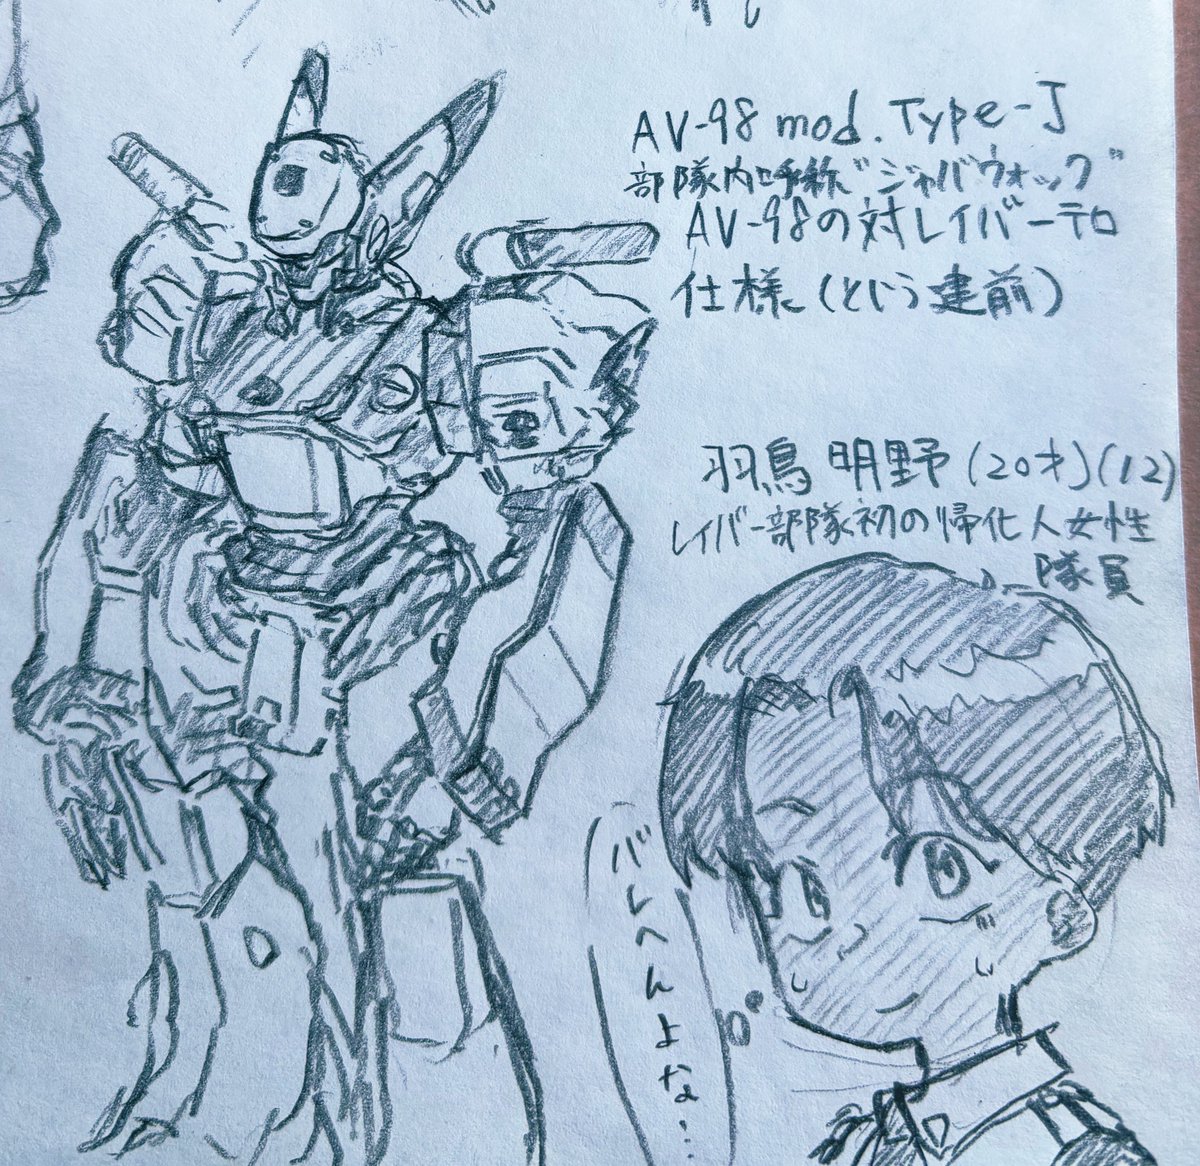 AV-98 mod. Type-J
部隊内呼称"ジャバウォック"
AV-98の対レイバーテロ
仕様(という建前)
羽鳥 明野(20才)(12)
レイバー部隊初の帰化人女性
隊員
バレへんよな…